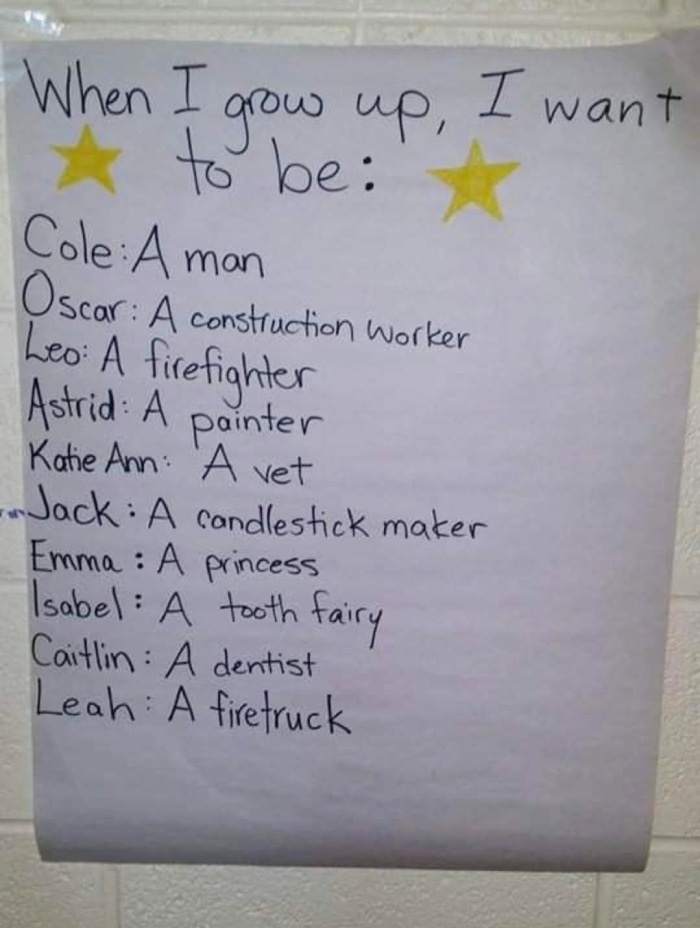 When I grow up, I want
to be:
Cole: A man
Oscar: A construction worker
Leo: A firefighter
Astrid: A painter
Katie Ann: A vet
Jack: A candlestick maker
Emma: A princess
Isabel: A tooth fairy
Caitlin: A dentist
Leah: A firetruck